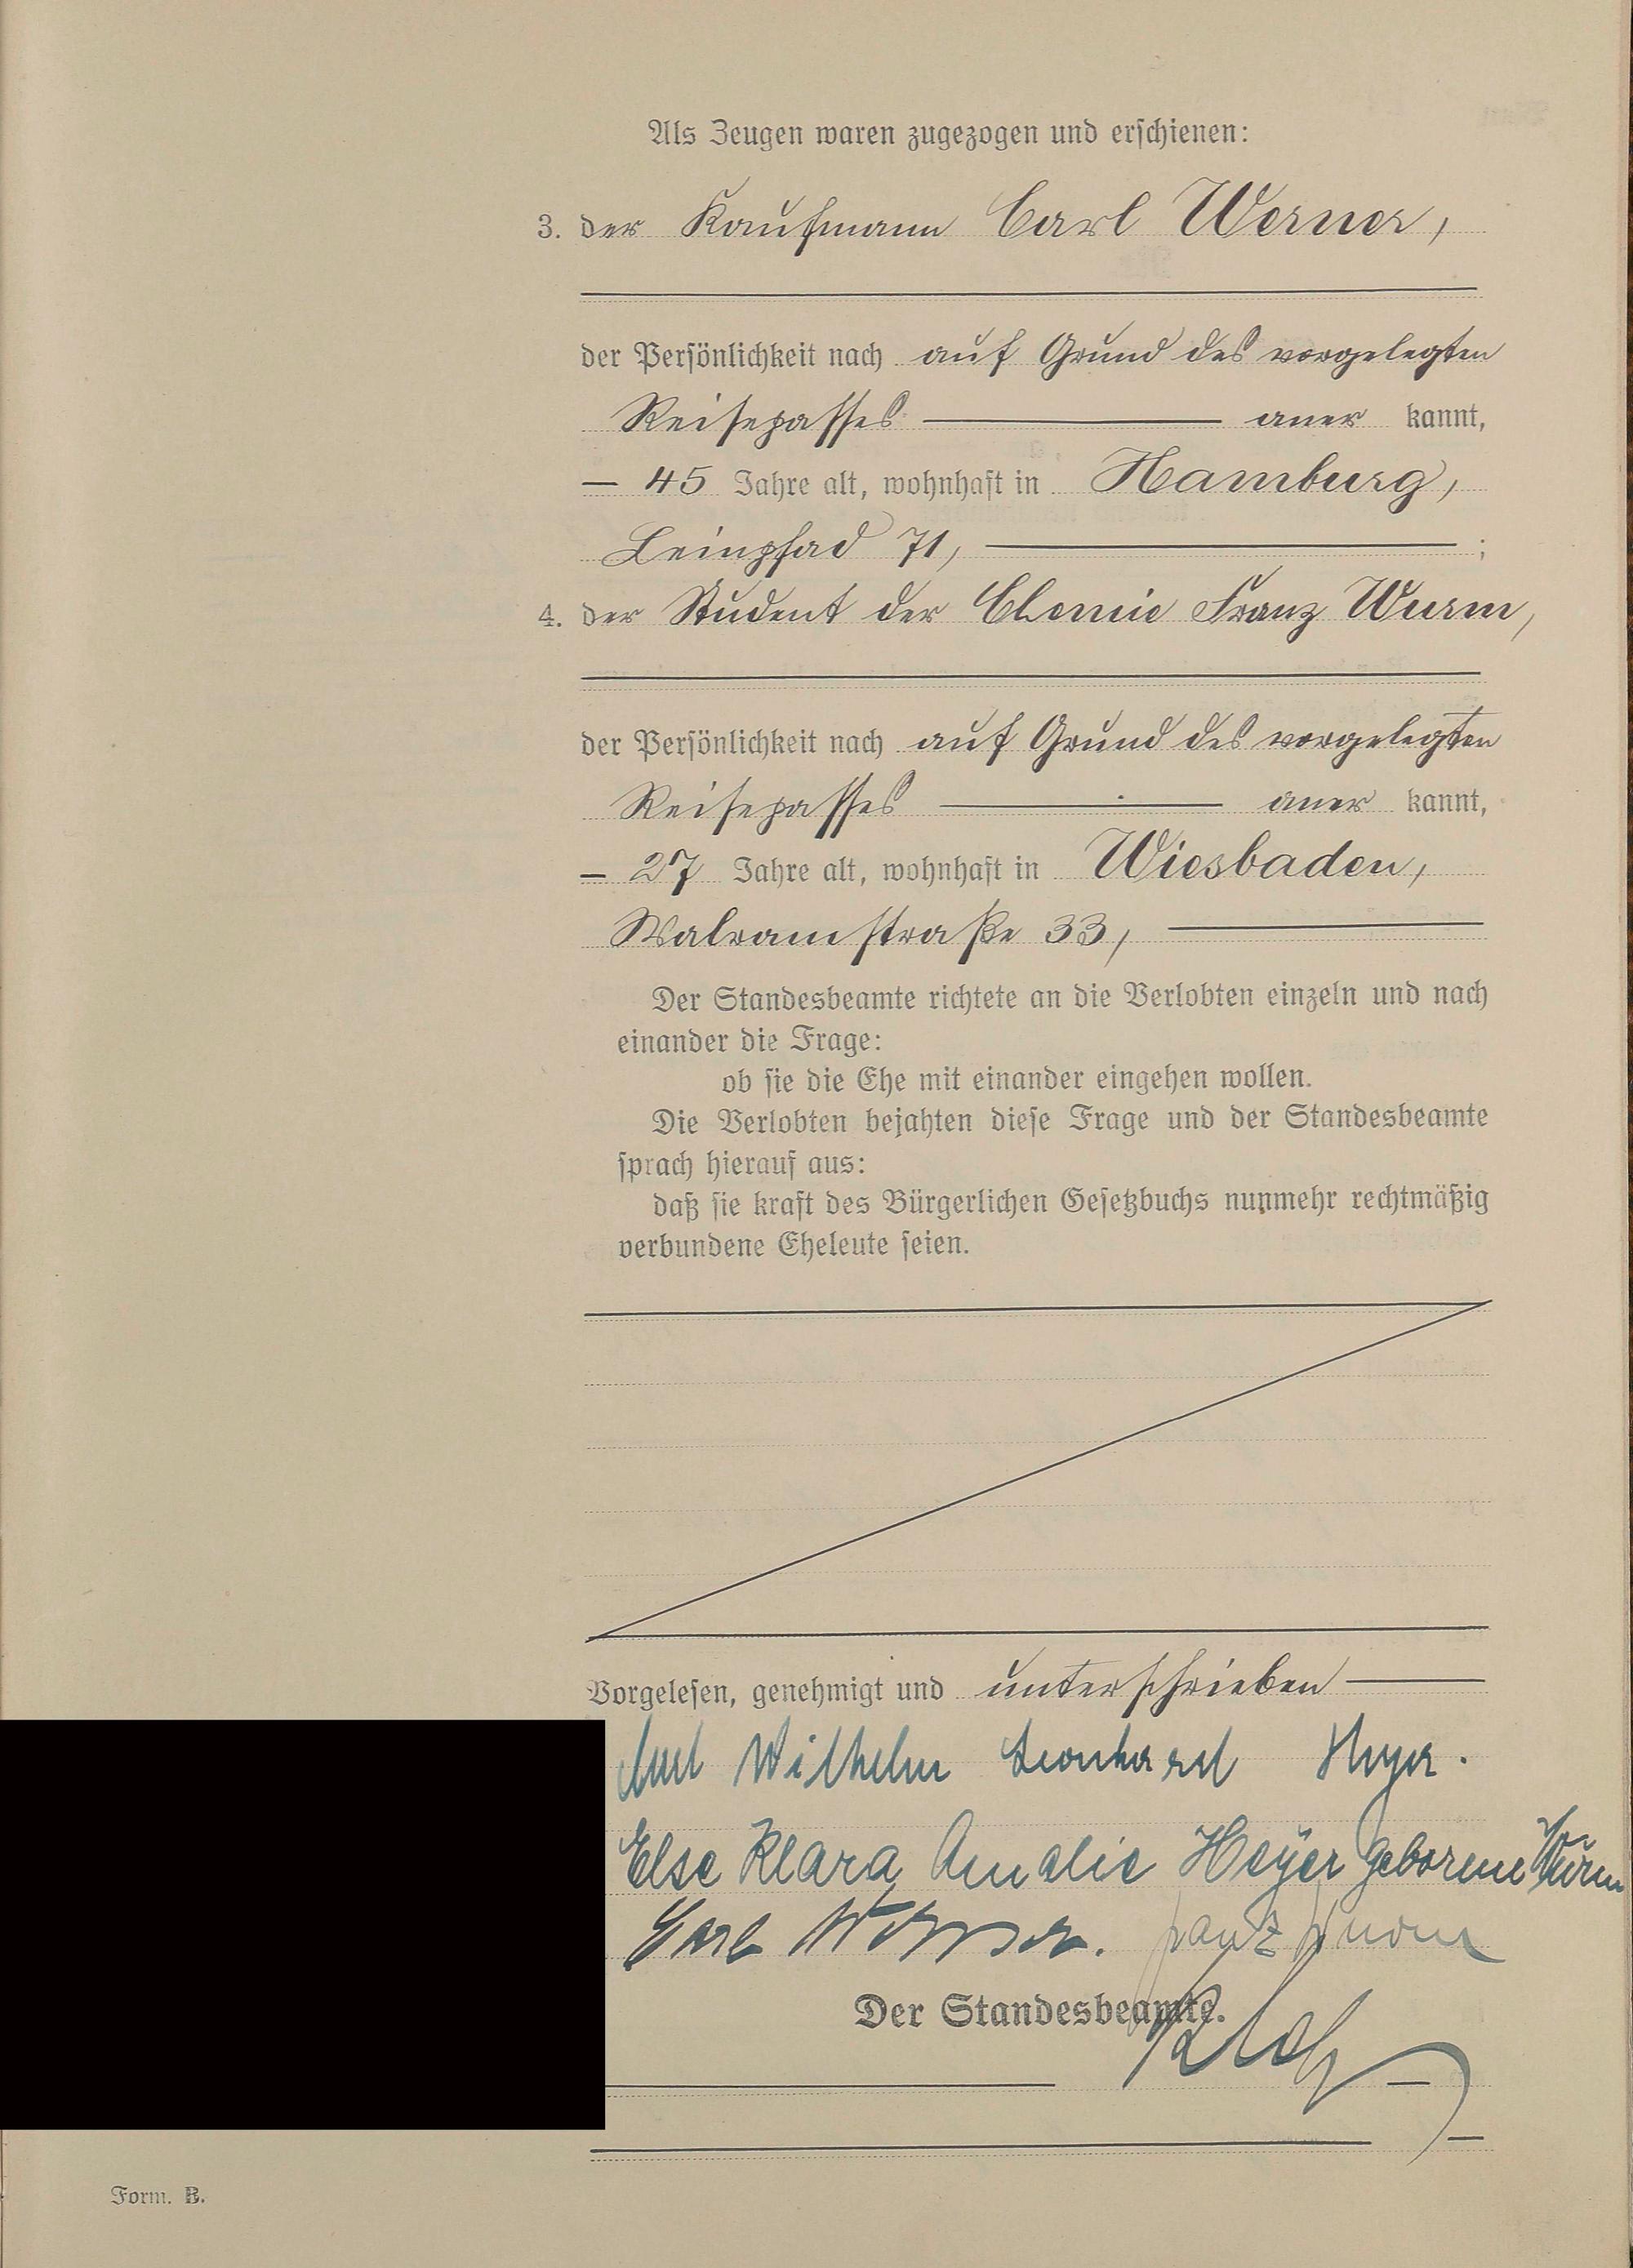 Als Zeugen waren zugezogen und erschienen:
3. der Kaufmann Carl Werner,
der Persönlichkeit nach auf Grund des vorgelegten
Reisepasses aner kannt,
45 Jahre alt, wohnhaft in Hamburg,
Leinpfad 71, ;
4. der Student der Chemie Franz Wurm,
der Persönlichkeit nach auf Grund des vorgelegten
Reisepasses aner kannt,
27 Jahre alt, wohnhaft in Wiesbaden,
Walramstraße 33,
Der Standesbeamte richtete an die Verlobten einzeln und nach
einander die Frage:
ob sie die Ehe mit einander eingehen wollen.
Die Verlobten bejahten diese Frage und der Standesbeamte
sprach hierauf aus:
daß sie kraft des Bürgerlichen Gesetzbuchs nunmehr rechtmäßig
verbundene Eheleute seien.
Vorgelesen, genehmigt und unterschrieben
Wilhelm Leonhard Heyer.
Else Klara Amalie Heyer geborene Wurm
Carl Werner. Franz Wurm
Der Standesbeamte.
Form. B.